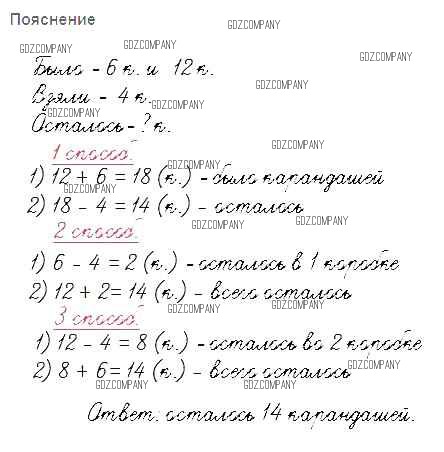 Пояснение
GDZCOMPANY
GDZCOMPANY GDZCOMPANY
GDZCOMPANY
Было - 6 к. и 12 к.
GDZCOMPANY
Взяли - 4 к.
GDZCOMPANY
GDZCOMPANY
Осталось - ? к.
GDZCOMPANY
1 способ.
GDZCOMPANY
1) 12 + 6 = 18 (к.) - было карандашей
GDZCOMPANY
2) 18 - 4 = 14 (к.) - осталось
GDZCOMPANY GDZCOMPANY
2 способ.
GDZCOMPANY
1) 6 - 4 = 2 (к.) - осталось в 1 коробке
2) 12 + 2 = 14 (к.) - всего осталось
GDZCOMPANY GDZCOMPANY
3 способ.
1) 12 - 4 = 8 (к.) - осталось во 2 коробке
GDZCOMPANY
2) 8 + 6 = 14 (к.) - всего осталось
GDZCOMPANY GDZCOMPANY
Ответ: осталось 14 карандашей.